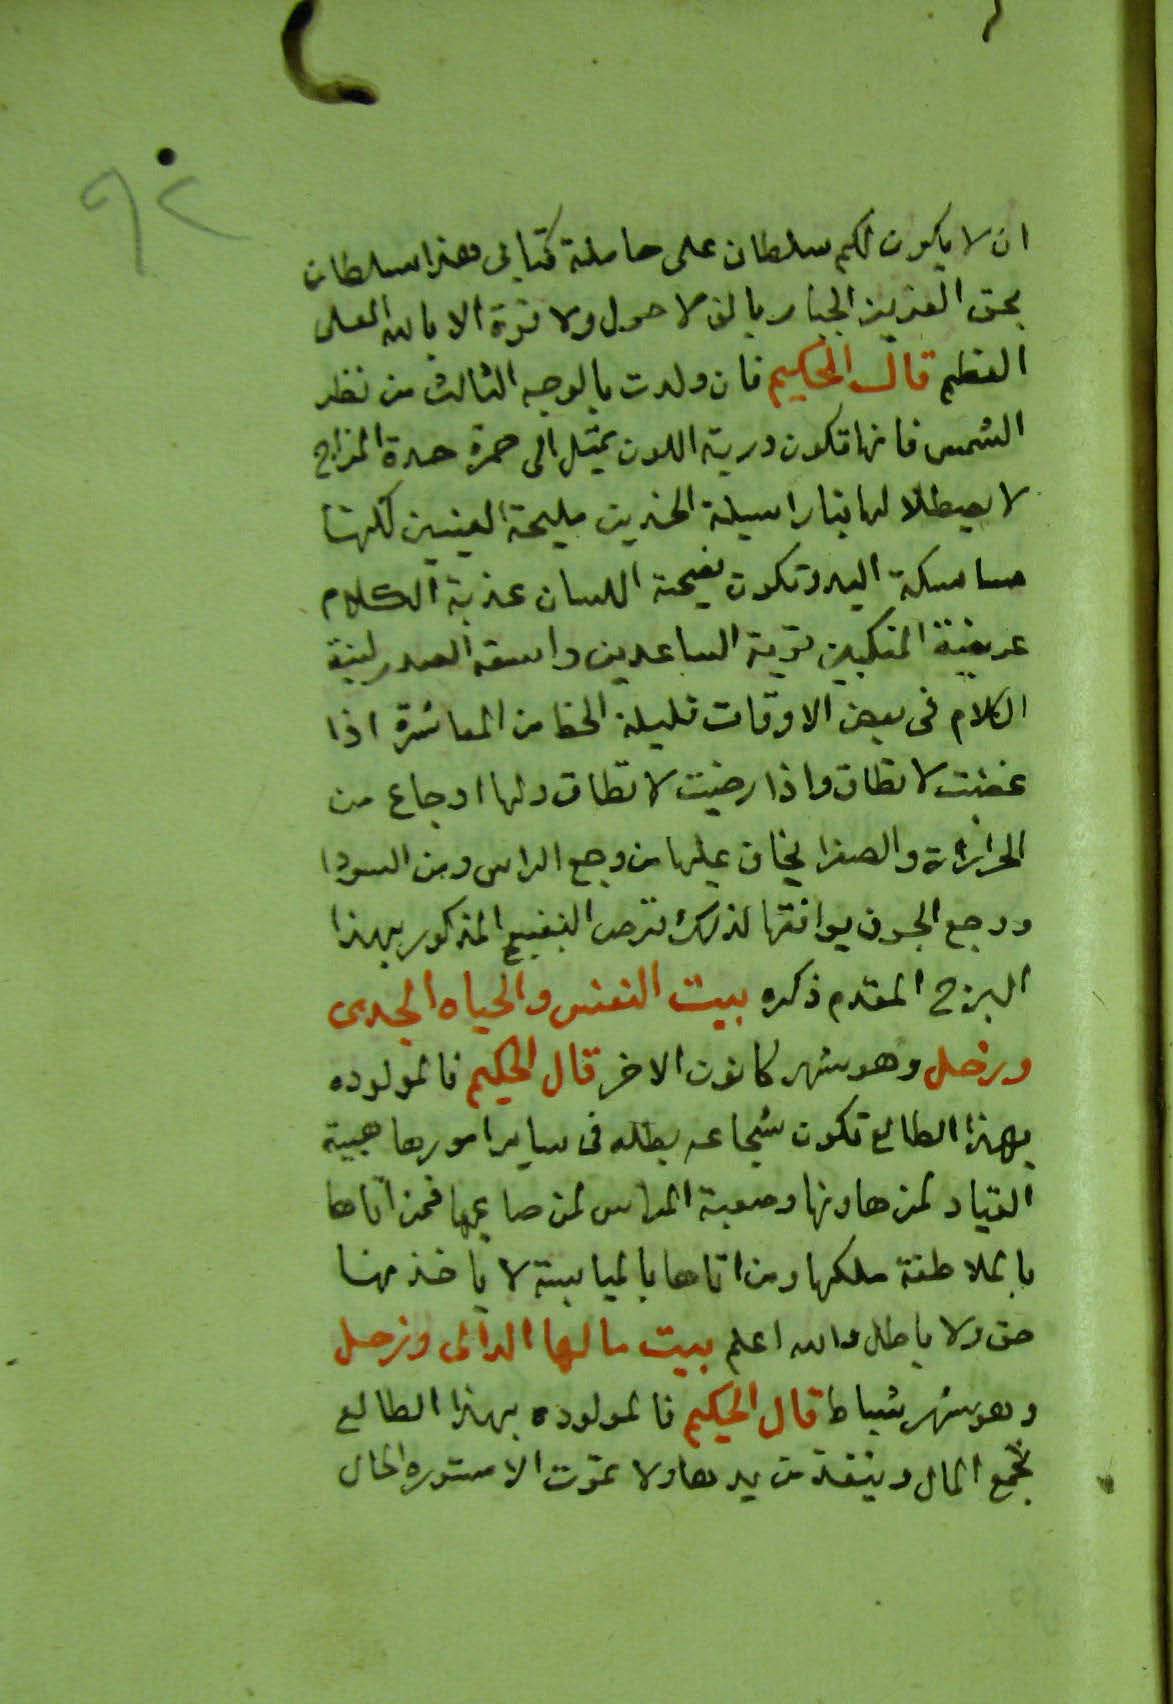 ٩٢
ان لا يكون لكم سلطان على حاملة كتابى هذا سلطان
بحق العزيز الجبار بالف لا حول ولا قوة الا بالله العلى
العظيم قال الحكيم فان ولدت بالوجه الثالث من نظر
الشمس فانها تكون درية اللون يميل الى حمرة حدة المزاج
لا يصطلا لها بنار اسيلة الخدين مليحة العينين لكنها
ماسكة اليد وتكون فصيحة اللسان عذبة الكلام
عريضة المنكبين قوية الساعدين واسعة الصدر لينة
الكلام فى بعض الاوقات قليلة الحظ من المعاشرة اذا
غضبت لا تطاق واذا رضيت لا تطاق ولها اوجاع من
الحرارة والصفرا يخاف عليها من وجع الراس ومن السودا
ووجع الجوف يوافقها لذلك قرص البنفسج المذكور بهذا
البرج المقدم ذكره بيت النفس والحياه الجدى
وزحل وهو شهر كانون الاخر قال الحكيم فالمولوده
بهذا الطالع تكون شجاعه بطله فى ساير امورها هينة
القياد لمن هاونها وصعبة المراس لمن صاعبها فمن اتاها
بالملاطفة ملكها ومن اتاها بالميابسة لا ياخذ منها
حق ولا باطل والله اعلم بيت مالها الدالى وزحل
وهو شهر شباط قال الحكيم فالمولوده بهذا الطالع
تجمع المال وينفذ من يدها ولا تموت الا مستوره الحال